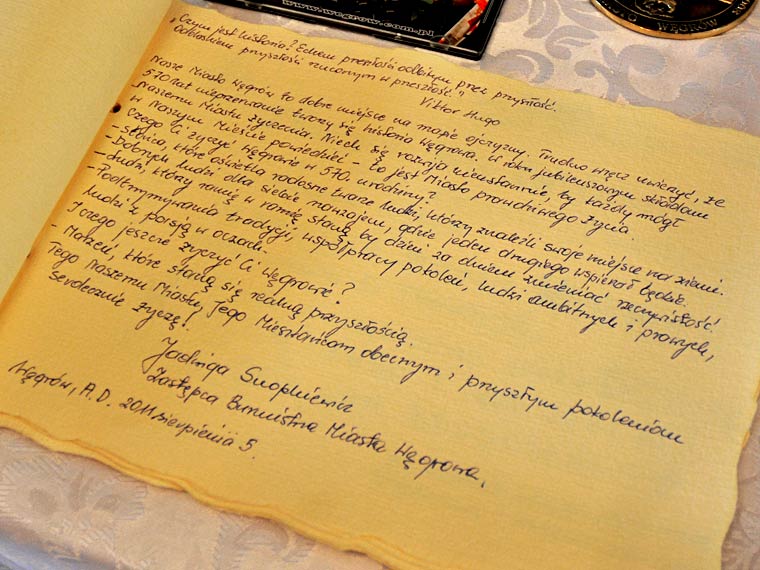 www.wegrow.com.pl
WĘGRÓW
„Czym jest historia? Echem przeszłości odbitym przez przyszłość.
Odblaskiem przyszłości rzuconym w przeszłość."
Viktor Hugo
Nasze Miasto Węgrów to dobre miejsce na mapie ojczyzny. Trudno wręcz uwierzyć, że
570 lat nieprzerwanie tworzy się historia Węgrowa. W roku jubileuszowym składam
Naszemu Miastu życzenia. Niech się rozwija nieustannie, by każdy mógł
w Naszym Mieście powiedzieć - to jest Miasto prawdziwego życia.
Czego Ci życzyć Węgrowie w 570. urodziny?
- Słońca, które oświetla radosne twarze ludzi, którzy znaleźli swoje miejsce na ziemi.
- Dobrych ludzi dla siebie nawzajem, gdzie jeden drugiego wspierał będzie.
- Ludzi, którzy ramię w ramię staną by dzień za dniem zmieniać rzeczywistość.
- Podtrzymywania tradycji, współpracy pokoleń, ludzi ambitnych i prawych,
ludzi z pasją w oczach.
I czego jeszcze życzyć Ci Węgrowie?
- Marzeń, które staną się realną przyszłością.
Tego Naszemu Miastu, Jego Mieszkańcom obecnym i przyszłym pokoleniom
serdecznie życzę!
Jadwiga Snopkiewicz
Zastępca Burmistrza Miasta Węgrowa,
Węgrów, A.D. 2011 sierpień 5.